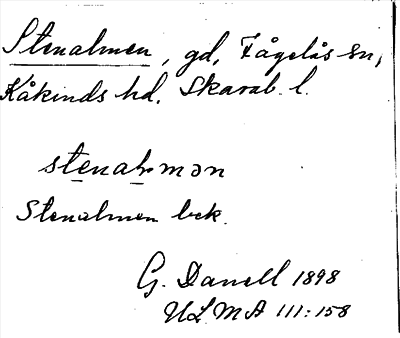 Stenalmen, gd, Fågelås sn,
Kåkinds hd. Skarab. l.
stenahmən
Stenalmen bek.
G. Danell 1898
ULMA 111:158